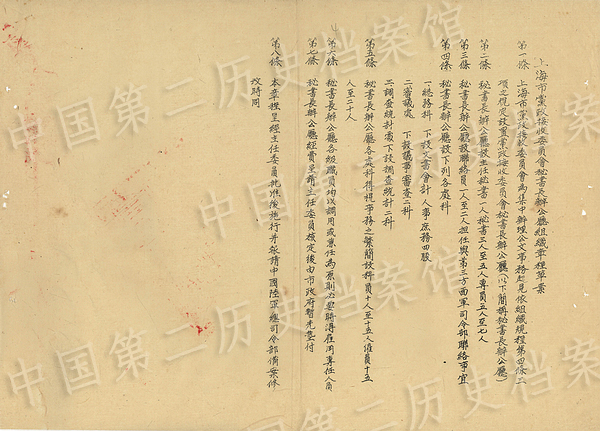 上海市黨政接收委員會秘書長辦公廳組織章程草案
第一條 上海市黨政接收委員會為集中辦理公文事務起見依組織規程第四條二
項之規定設置黨政接收委員會秘書長辦公廳(以下簡稱秘書長辦公廳)
第二條 秘書長辦公廳設主任秘書一人秘書三人至五人專員五人至七人
第三條 秘書長辦公廳設聯絡員一人至二人担任與第三方面軍司令部聯絡事宜
第四條 秘書長辦公廳設下列各處科
一總務科 下設文書會計人事庶務四股
二審議處 下設議事審查二科
三調查統計處下設調查統計二科
第五條 秘書長辦公廳各處科得視事務之繁簡設科員十人至十五人僱員十五
人至二十人
第六條 秘書長辦公廳各級職員均以調用或兼任為原則必要時得雇用專任人員
第七條 秘書長辦公廳經費呈請主任委員核定後由市政府暫先墊付
第八條 本章程呈經主任委員批准後施行并報請中國陸軍總司令部備案修
改時同
中国第二历史档案馆
中国第二历史档案馆
中国第二历史档案馆